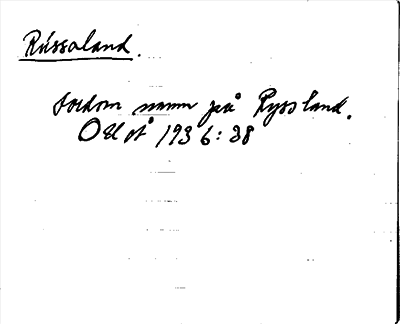 Rússaland.
fordom namn på Ryssland.
OUOÅ 1936:38